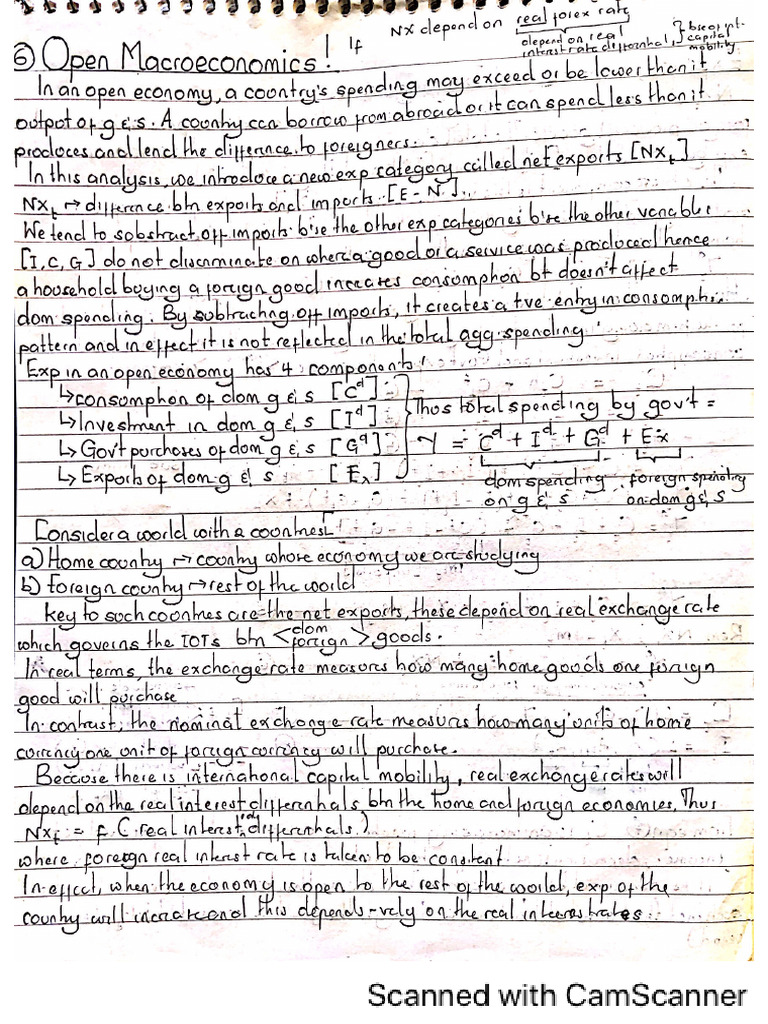 NX depend on real forex rate
If
depend on real
interest rate differential
b'se of int.
capital
mobility.
⑥ Open Macroeconomics!
In an open economy, a country's spending may exceed or be lower than it
output of g & s. A country can borrow from abroad or it can spend less than it
produces and lend the difference to foreigners.
In this analysis, we introduce a new exp category called net exports [NXt]
NXt → difference btn exports and imports [E - N].
We tend to substract off imports b'se the other exp categories b'se the other variable
[I, C, G] do not discriminate on where a good or a service was produced hence
a household buying a foreign good increases consumption bt doesn't affect
dom spending. By subtracting off imports, it creates a +ve entry in consumpti..
pattern and in effect it is not reflected in the total agg spending
Exp in an open economy has 4 components!
↳ consumption of dom g & s [Cᵈ]
↳ Investment in dom g & s [Iᵈ]
↳ Gov't purchases of dom g & s [Gᵈ]
↳ Exports of dom g & s [Ex]
Thus total spending by gov't =
Y = Cᵈ + Iᵈ + Gᵈ + Ex
dom spending foreign spending
on g & s on dom g & s
Consider a world with 2 countries
a) Home country → country whose economy we are studying
b) Foreign country → rest of the world
key to such countries are the net exports, these depend on real exchange rate
which governs the TOTs btn < dom foreign > goods.
In real terms, the exchange rate measures how many home goods one foreign
good will purchase
In contrast, the nominal exchange rate measures how many units of home
currency one unit of foreign currency will purchase.
Because there is international capital mobility, real exchange rates will
depend on the real interest differentials btn the home and foreign economies, Thus
NXt = f (real interest differentials)
where foreign real interest rate is taken to be constant.
In effect, when the economy is open to the rest of the world, exp of the
country will increase and this depends -vely on the real interest rates.
Scanned with CamScanner